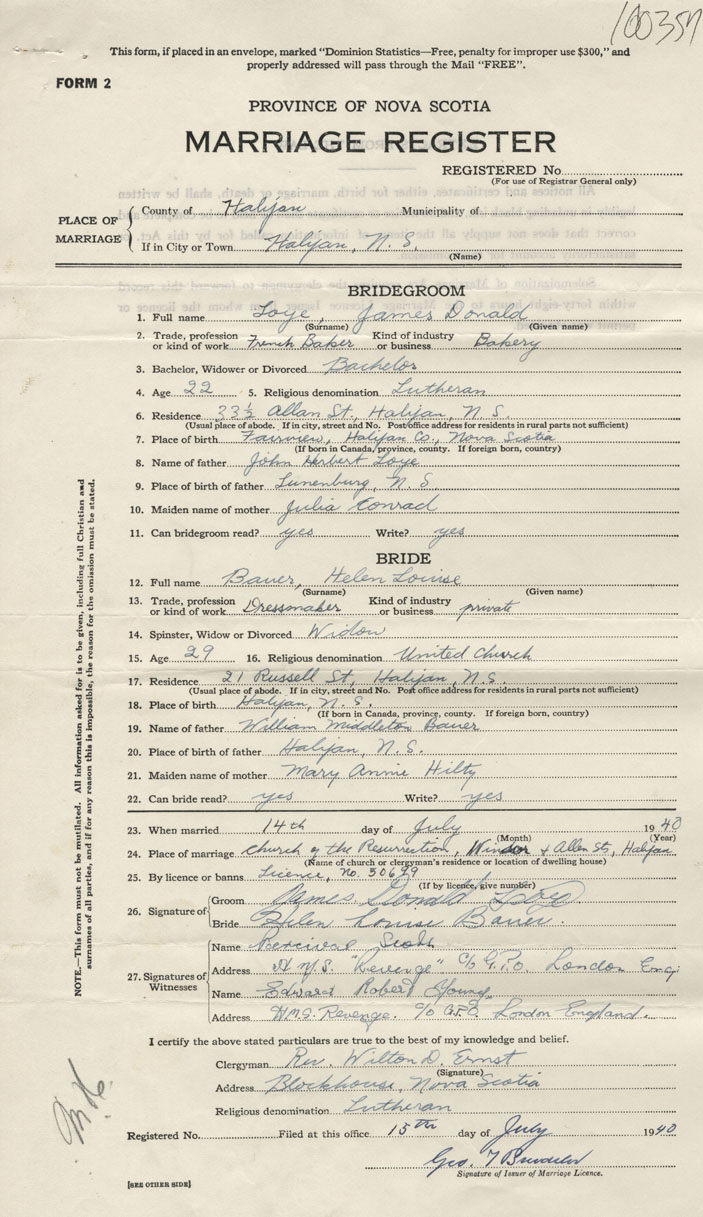 100357
This form, if placed in an envelope, marked "Dominion Statistics—Free, penalty for improper use $300," and
properly addressed will pass through the Mail "FREE".
FORM 2
PROVINCE OF NOVA SCOTIA
MARRIAGE REGISTER
REGISTERED No.
(For use of Registrar General only)
PLACE OF MARRIAGE
County of Halifax Municipality of
If in City or Town Halifax, N.S.
(Name)
BRIDEGROOM
1. Full name Loye, James Donald
(Surname) (Given name)
2. Trade, profession or kind of work French Baker Kind of industry or business Bakery
3. Bachelor, Widower or Divorced Bachelor
4. Age 22 5. Religious denomination Lutheran
6. Residence 33½ Allan St., Halifax, N.S.
(Usual place of abode. If in city, street and No. Post office address for residents in rural parts not sufficient)
7. Place of birth Fairview, Halifax Co., Nova Scotia
(If born in Canada, province, county. If foreign born, country)
8. Name of father John Herbert Loye
9. Place of birth of father Lunenburg, N.S.
10. Maiden name of mother Julia Conrad
11. Can bridegroom read? yes Write? yes
BRIDE
12. Full name Bauer, Helen Louise
(Surname) (Given name)
13. Trade, profession or kind of work Dressmaker Kind of industry or business private
14. Spinster, Widow or Divorced Widow
15. Age 29 16. Religious denomination United Church
17. Residence 21 Russell St., Halifax, N.S.
(Usual place of abode. If in city, street and No. Post office address for residents in rural parts not sufficient)
18. Place of birth Halifax, N.S.
(If born in Canada, province, county. If foreign born, country)
19. Name of father William Middleton Bauer
20. Place of birth of father Halifax, N.S.
21. Maiden name of mother Mary Annie Hilty
22. Can bride read? yes Write? yes
23. When married 14th day of July 1940
(Month) (Year)
24. Place of marriage Church of the Resurrection, Windsor & Allen Sts, Halifax
(Name of church or clergyman's residence or location of dwelling house)
25. By licence or banns Licence, no. 50699
(If by licence, give number)
26. Signature of
Groom James Donald Loye
Bride Helen Louise Bauer.
27. Signatures of Witnesses
Name Percival Scott
Address H.M.S. "Revenge" C/o G.P.O. London Eng.
Name Edward Robert Young
Address H.M.S. Revenge. C/o G.P.O. London England.
I certify the above stated particulars are true to the best of my knowledge and belief.
Clergyman Rev. Wilton D. Ernst
(Signature)
Address Blockhouse, Nova Scotia
Religious denomination Lutheran
Registered No. Filed at this office 15th day of July 1940
Geo. T
Signature of Issuer of Marriage Licence.
[SEE OTHER SIDE]
NOTE.—This form must not be mutilated. All information asked for is to be given, including full Christian and
surnames of all parties, and if for any reason this is impossible, the reason for the omission must be stated.